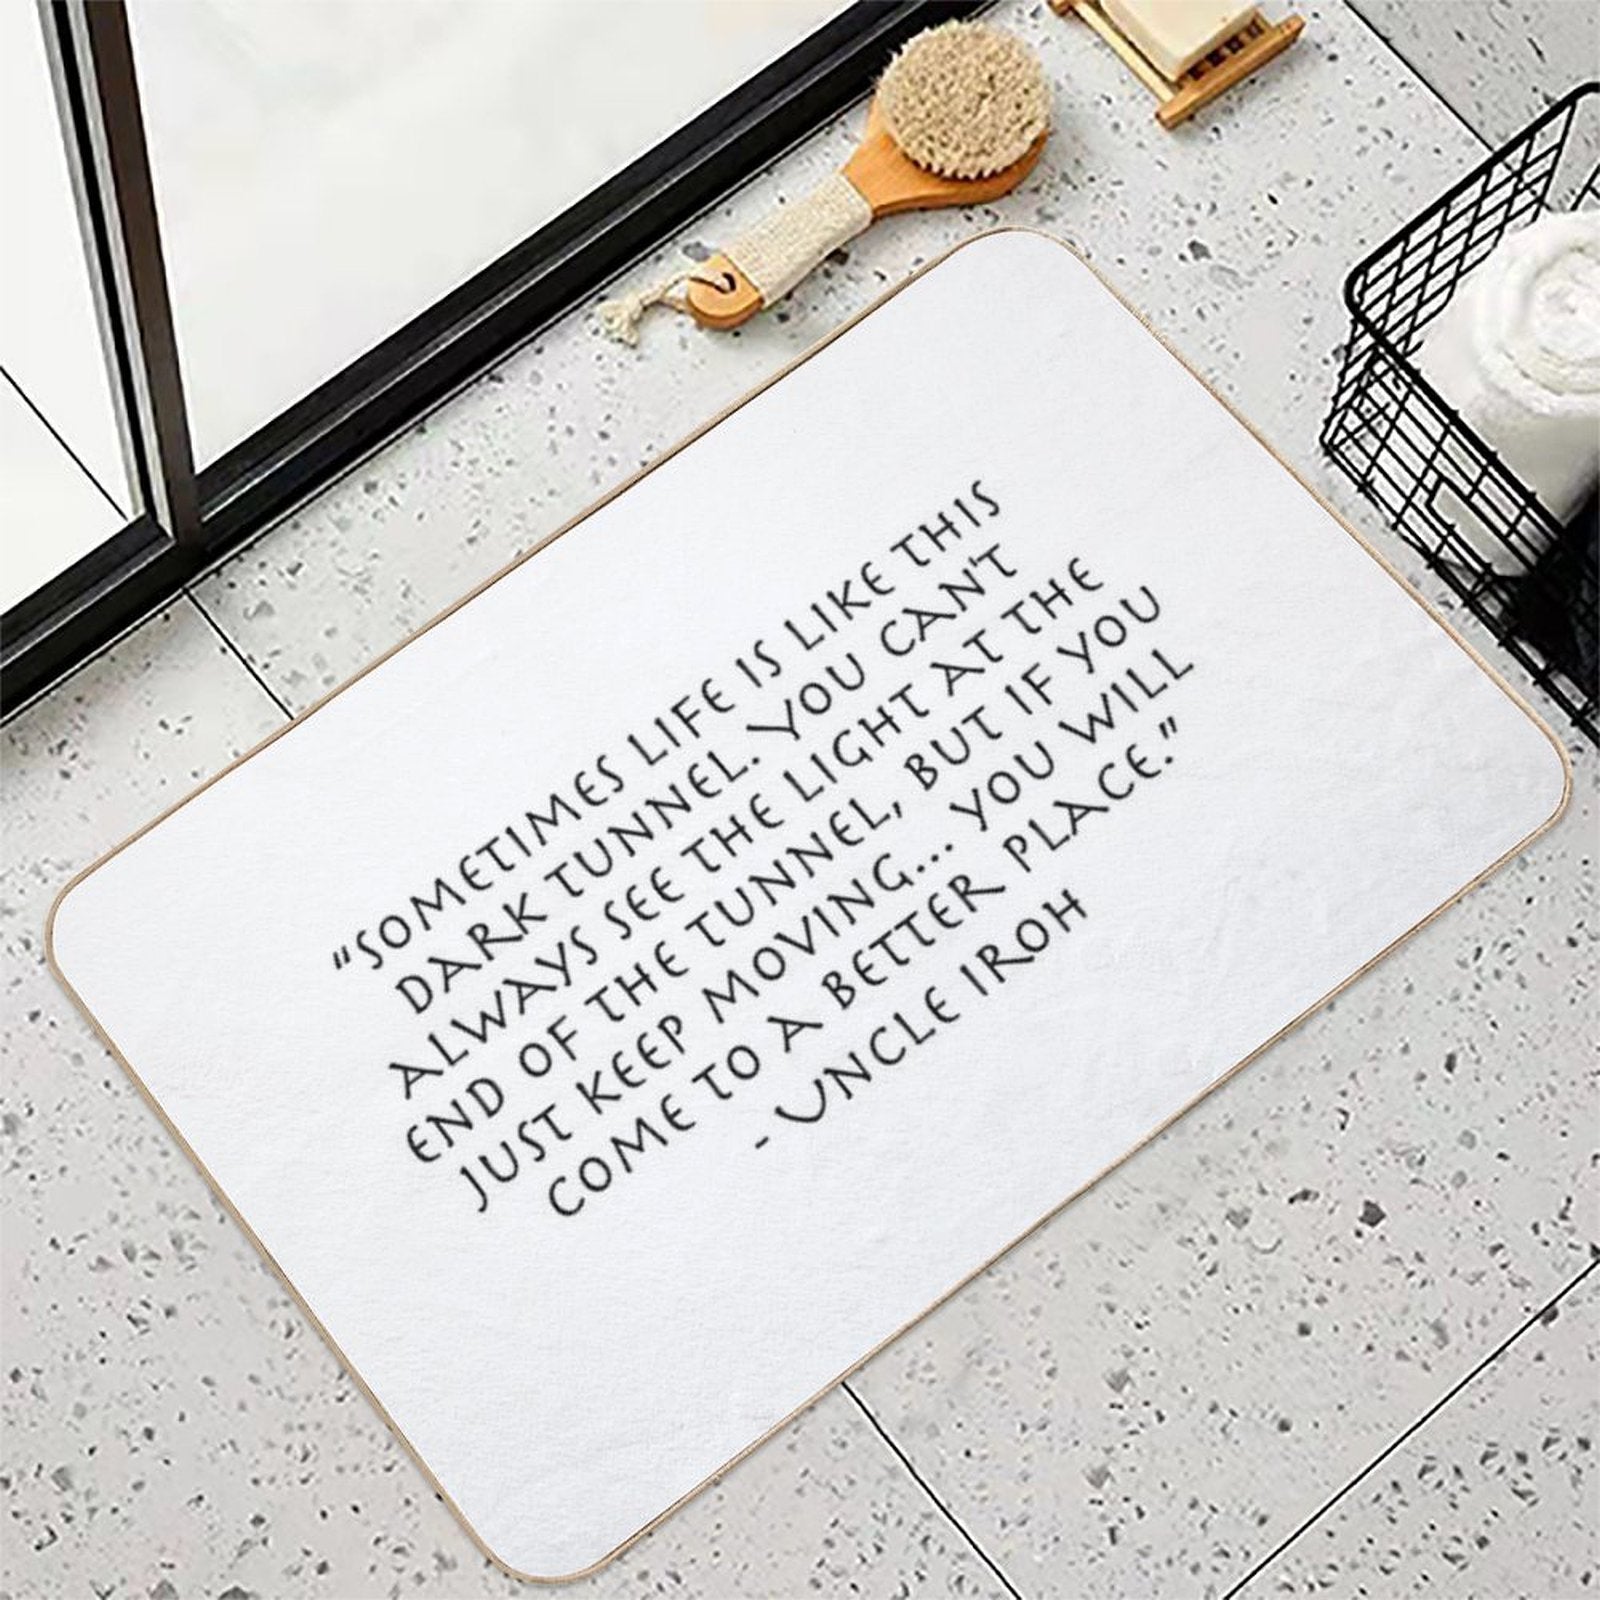 “SOMETIMES LIFE IS LIKE THIS
DARK TUNNEL. YOU CAN'T
ALWAYS SEE THE LIGHT AT THE
END OF THE TUNNEL, BUT IF YOU
JUST KEEP MOVING... YOU WILL
COME TO A BETTER PLACE.”
- UNCLE IROH